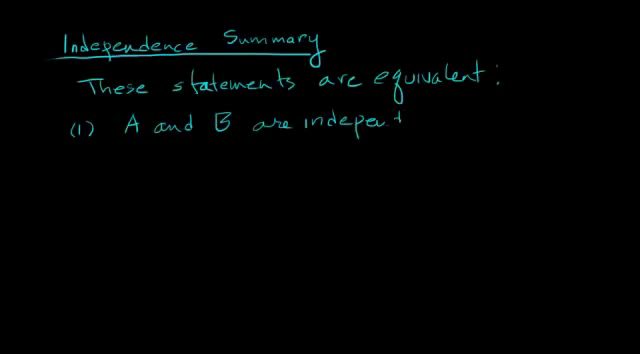 Independence Summary
These statements are equivalent:
(1) A and B are indepen